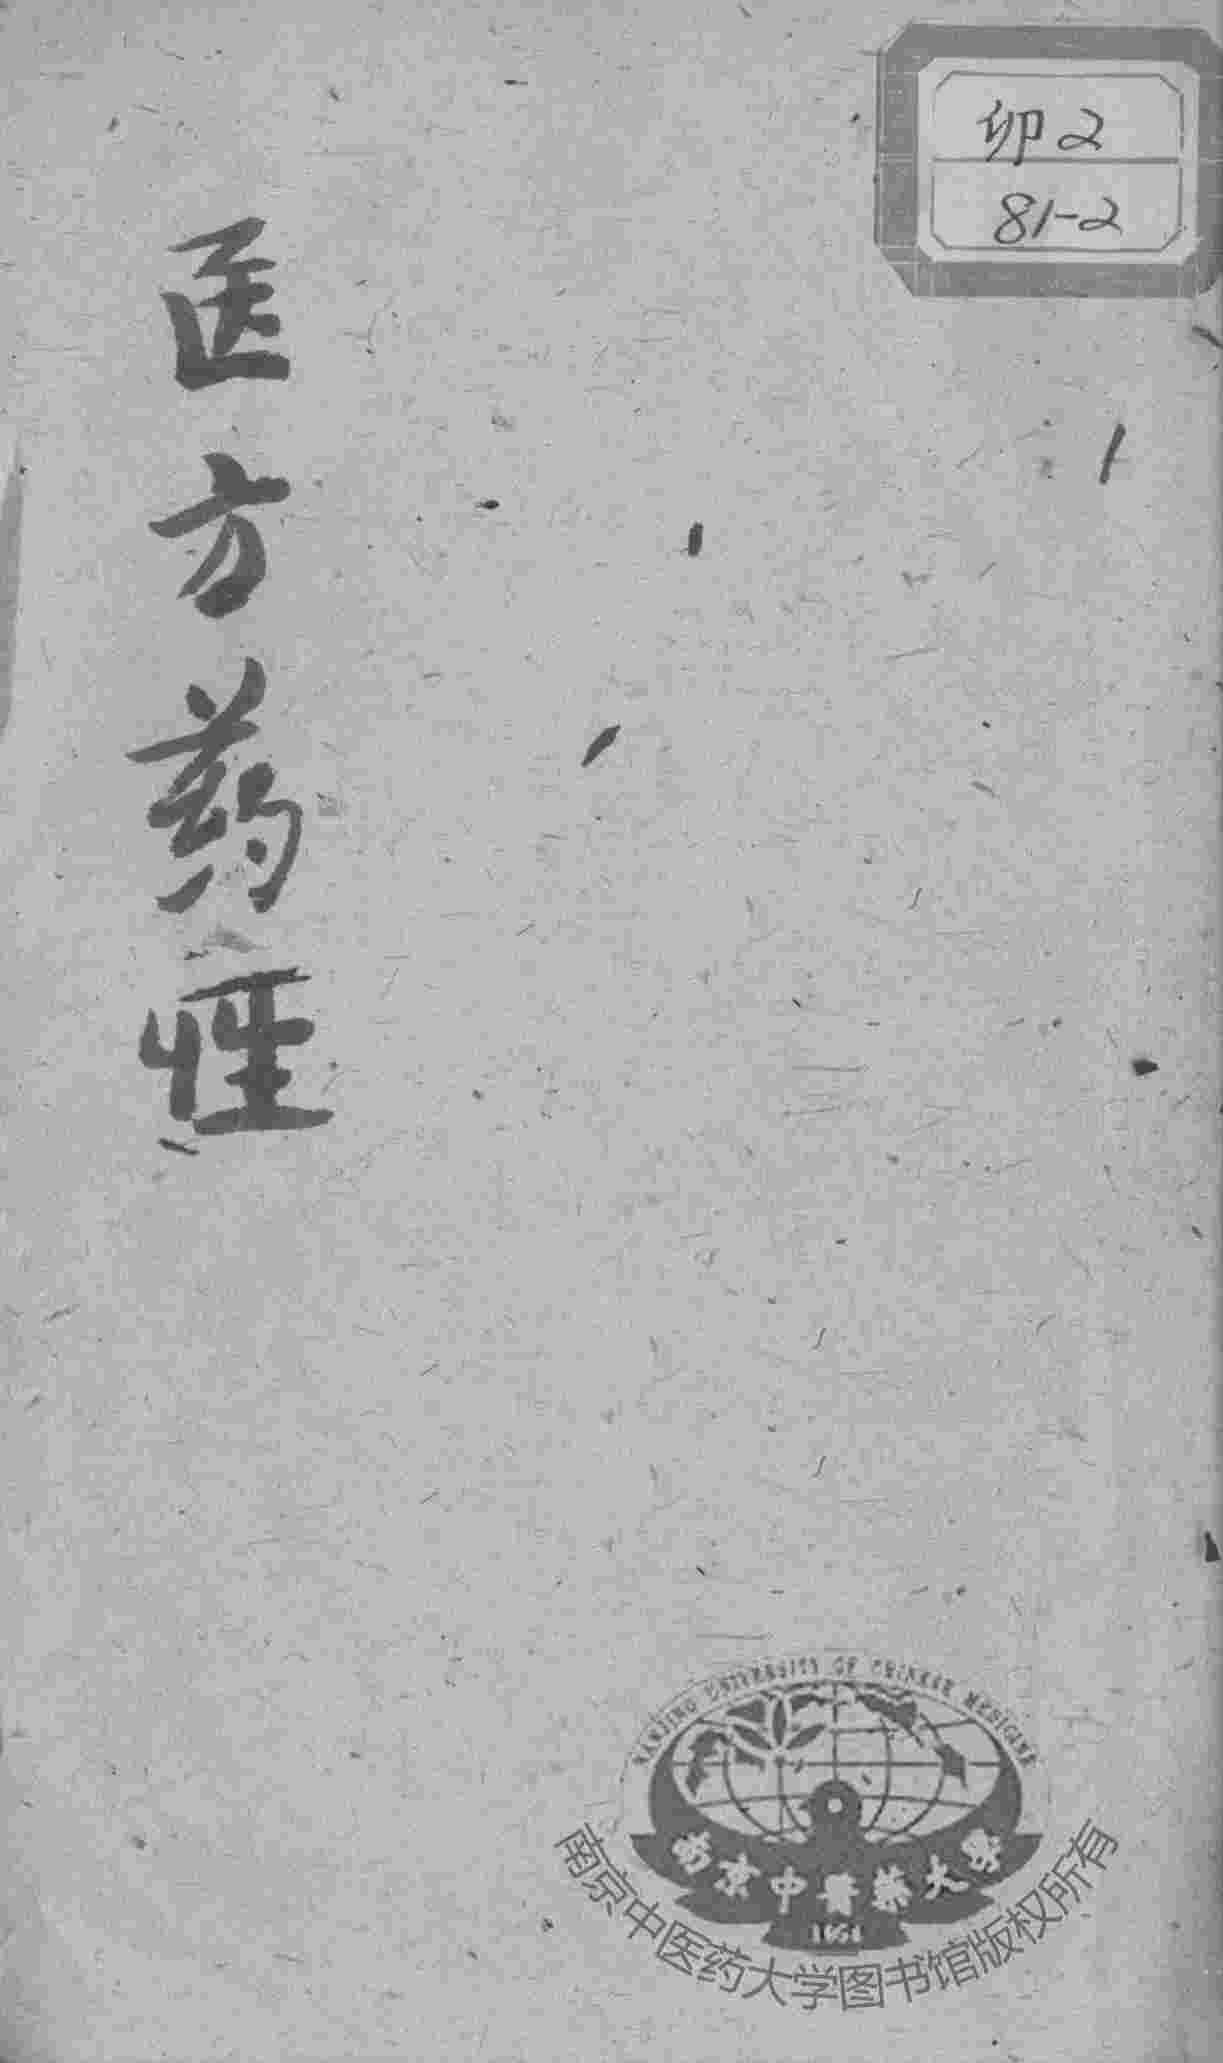 卯2
81-2
医方药性
NANJING UNIVERSITY OF CHINESE MEDICINE
南京中醫藥大學
南京中医药大学图书馆版权所有